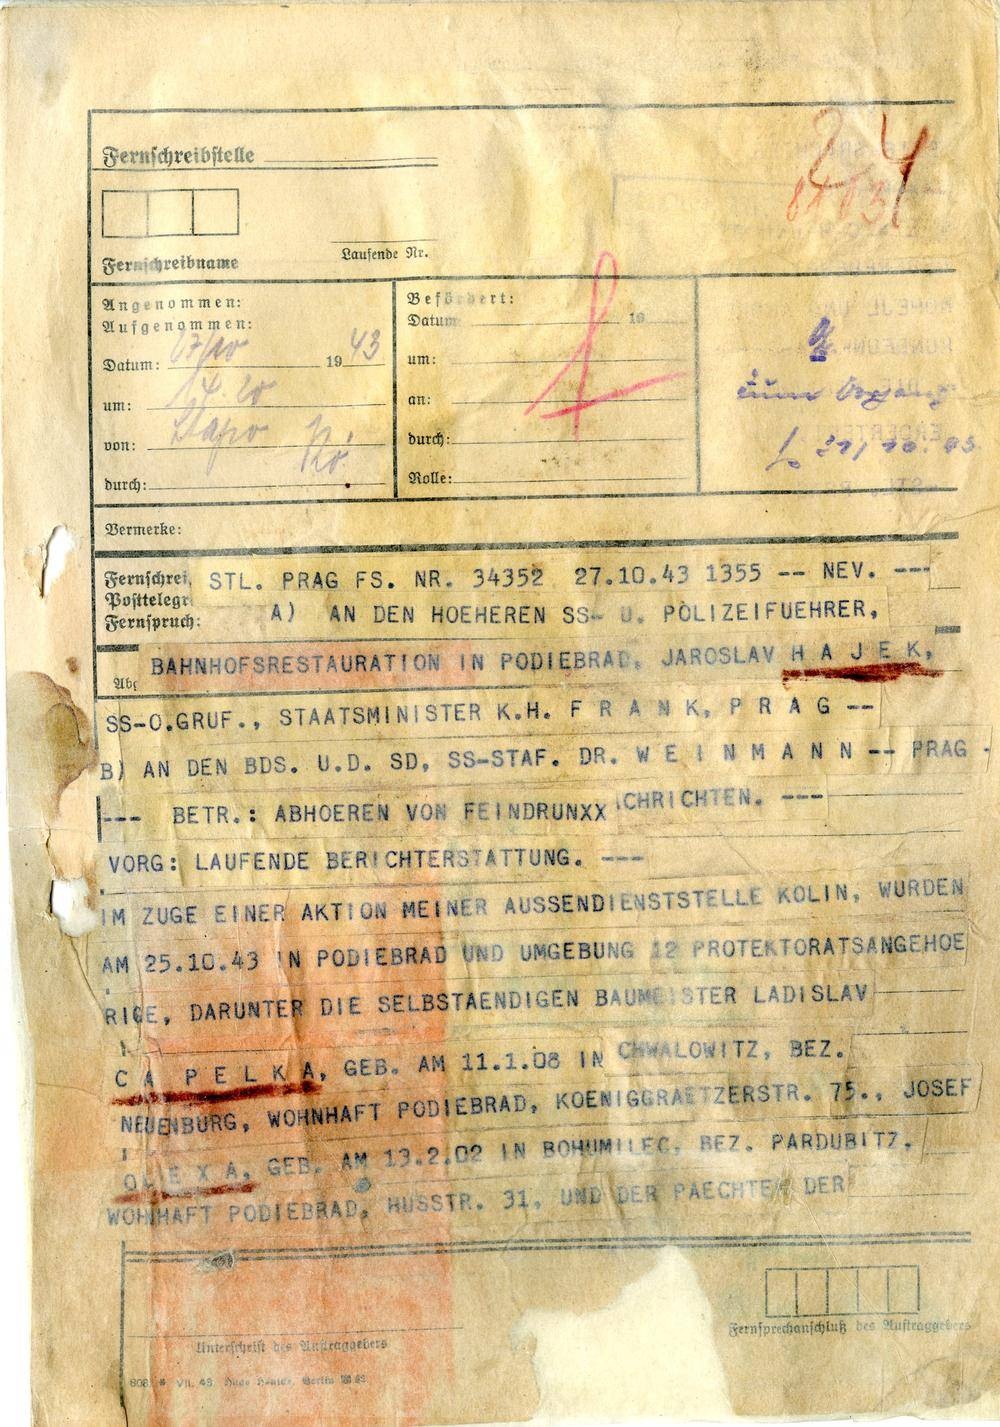 Fernschreibstelle
Fernschreibname
Laufende Nr.
Angenommen:
Aufgenommen:
Datum: 19 43
um:
von:
durch:
Befördert:
Datum 19
um:
an:
durch:
Rolle:
Vermerke:
Fernschrei
Posttelegr
Fernspruch:
STL. PRAG FS. NR. 34352 27.10.43 1355 -- NEV. ---
A) AN DEN HOEHEREN SS- U. POLIZEIFUEHRER,
BAHNHOFSRESTAURATION IN PODIEBRAD, JAROSLAV H A J E K,
SS-O.GRUF., STAATSMINISTER K.H. F R A N K, P R A G --
B) AN DEN BDS. U.D. SD, SS-STAF. DR. W E I N M A N N -- PRAG -
--- BETR.: ABHOEREN VON FEINDRUNXX CHRICHTEN. ---
VORG: LAUFENDE BERICHTERSTATTUNG. ---
IM ZUGE EINER AKTION MEINER AUSSENDIENSTSTELLE KOLIN, WURDEN
AM 25.10.43 IN PODIEBRAD UND UMGEBUNG 12 PROTEKTORATSANGEHOE
RIGE, DARUNTER DIE SELBSTAENDIGEN BAUMEISTER LADISLAV
C A P E L K A, GEB. AM 11.1.08 IN CHWALOWITZ, BEZ.
NEUENBURG, WOHNHAFT PODIEBRAD, KOENIGGRAETZERSTR. 75., JOSEF
OL E X A, GEB. AM 13.2.02 IN BOHUMILEC, BEZ. PARDUBITZ,
WOHNHAFT PODIEBRAD, HUSSTR. 31, UND DER PAECHTER DER
Unterschrift des Auftraggebers
Fernsprechanschluß des Auftraggebers